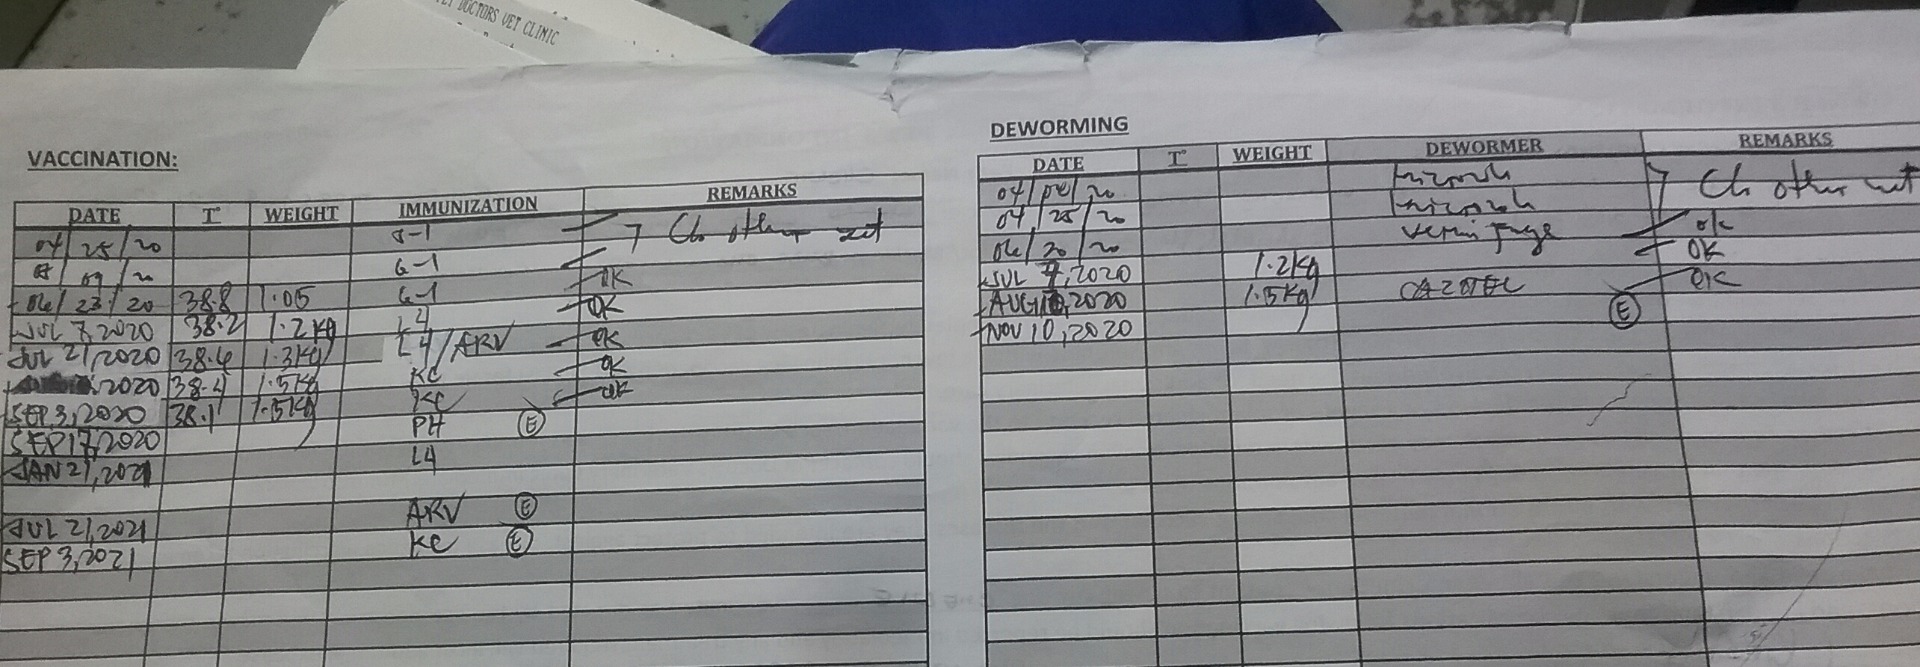 DOCTORS VET CLINIC
VACCINATION:
DATE T° WEIGHT IMMUNIZATION REMARKS
04/25/20 5-1 other vet
09/20 6-1
06/23/20 38.8 1.05 6-1 OK
JUL 7, 2020 38.2 1.2kg L4 OK
JUL 21, 2020 38.4 1.3kg L4/ARV OK
2020 38.4 1.5kg KC OK
SEP 3, 2020 38.1 1.5kg KC OK
SEP 17, 2020 PH E
JAN 21, 2021 L4
JUL 21, 2021 ARV E
SEP 3, 2021 KC E
DEWORMING
DATE T° WEIGHT DEWORMER REMARKS
04/04/20 other vet
04/25/20
06/20/20 OK
JUL 7, 2020 1.2kg OK
AUG 2020 1.5kg CAZITEL OK
NOV 10, 2020 E